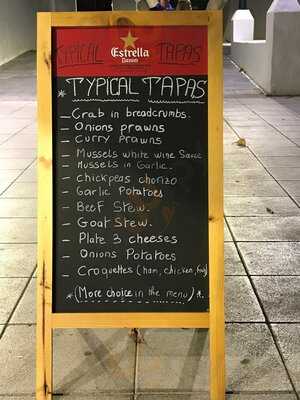 TYPICAL TAPAS
Estrella
Damm
* TYPICAL TAPAS
- Crab in breadcrumbs.
- Onions prawns
- Curry Prawns
- Mussels white wine Sauce
- Mussels in Garlic.
- Chickpeas chorizo.
- Garlic Potatoes
- Beef Stew.
- Goat Stew.
- Plate 3 cheeses
- Onions Potatoes
- Croquettes (ham, chicken, foot)
* (More choice in the menu) *.